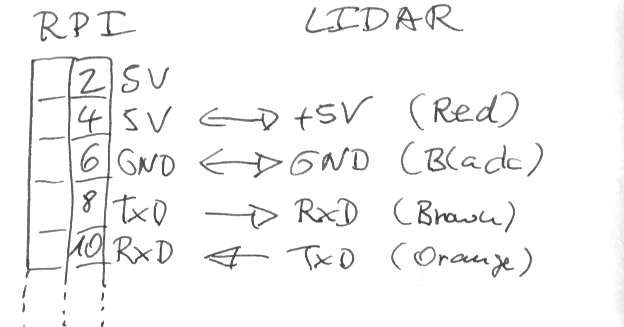 RPI LIDAR
2 5V
4 5V ↔ +5V (Red)
6 GND ↔ GND (Black)
8 TxD → RxD (Brown)
10 RxD ← TxD (Orange)